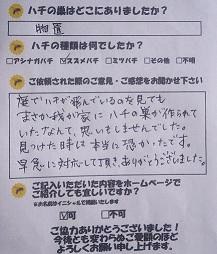 ハチの巣はどこにありましたか?
物置
ハチの種類は何でしたか?
□アシナガバチ ☑スズメバチ □ミツバチ □その他 □不明
ご依頼された際のご意見・ご感想をお聞かせ下さい
庭でハチが飛んでいるのを見ても
まさか我が家にハチの巣が作られて
いたなんて、思いもしませんでした。
見つけた時は本当に恐かったです。
早急に対応して頂き、ありがとうございました。
ご記入いただいた内容をホームページで
ご紹介しても宜しいですか?
※お名前はイニシャルで掲載いたします
☑可 □不可
ご協力ありがとうございました!
今後とも変わらぬご愛顧のほど
よろしくお願い申し上げます。